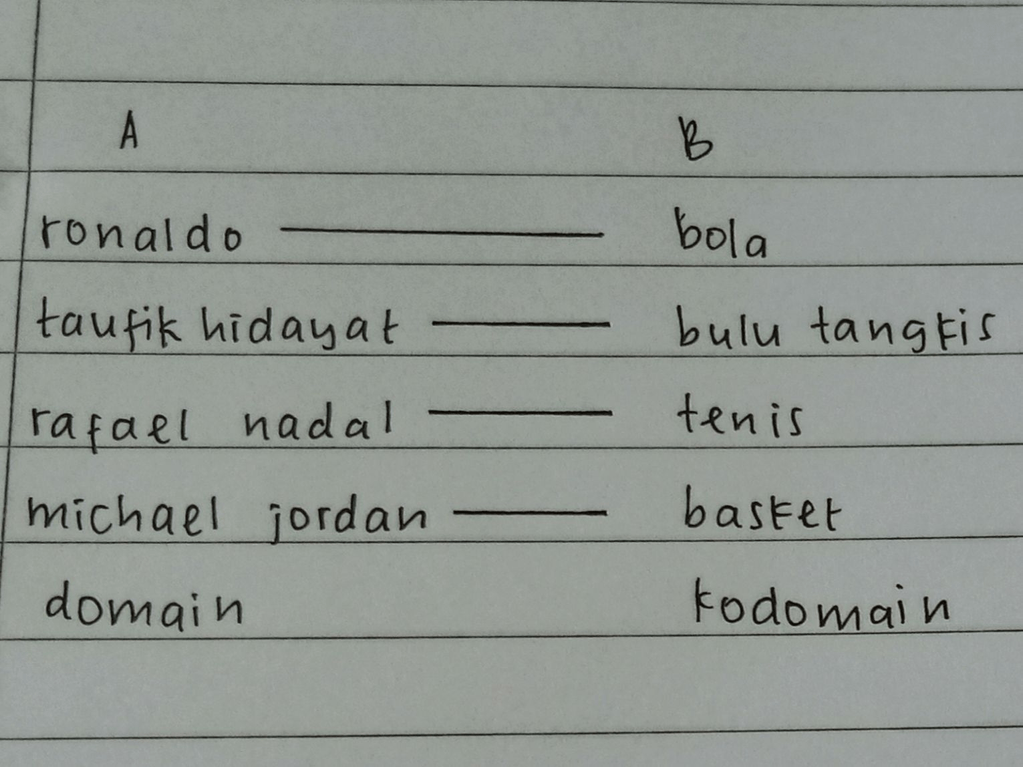 A B
ronaldo — bola
taufik hidayat — bulu tangkis
rafael nadal — tenis
michael jordan — basket
domain kodomain